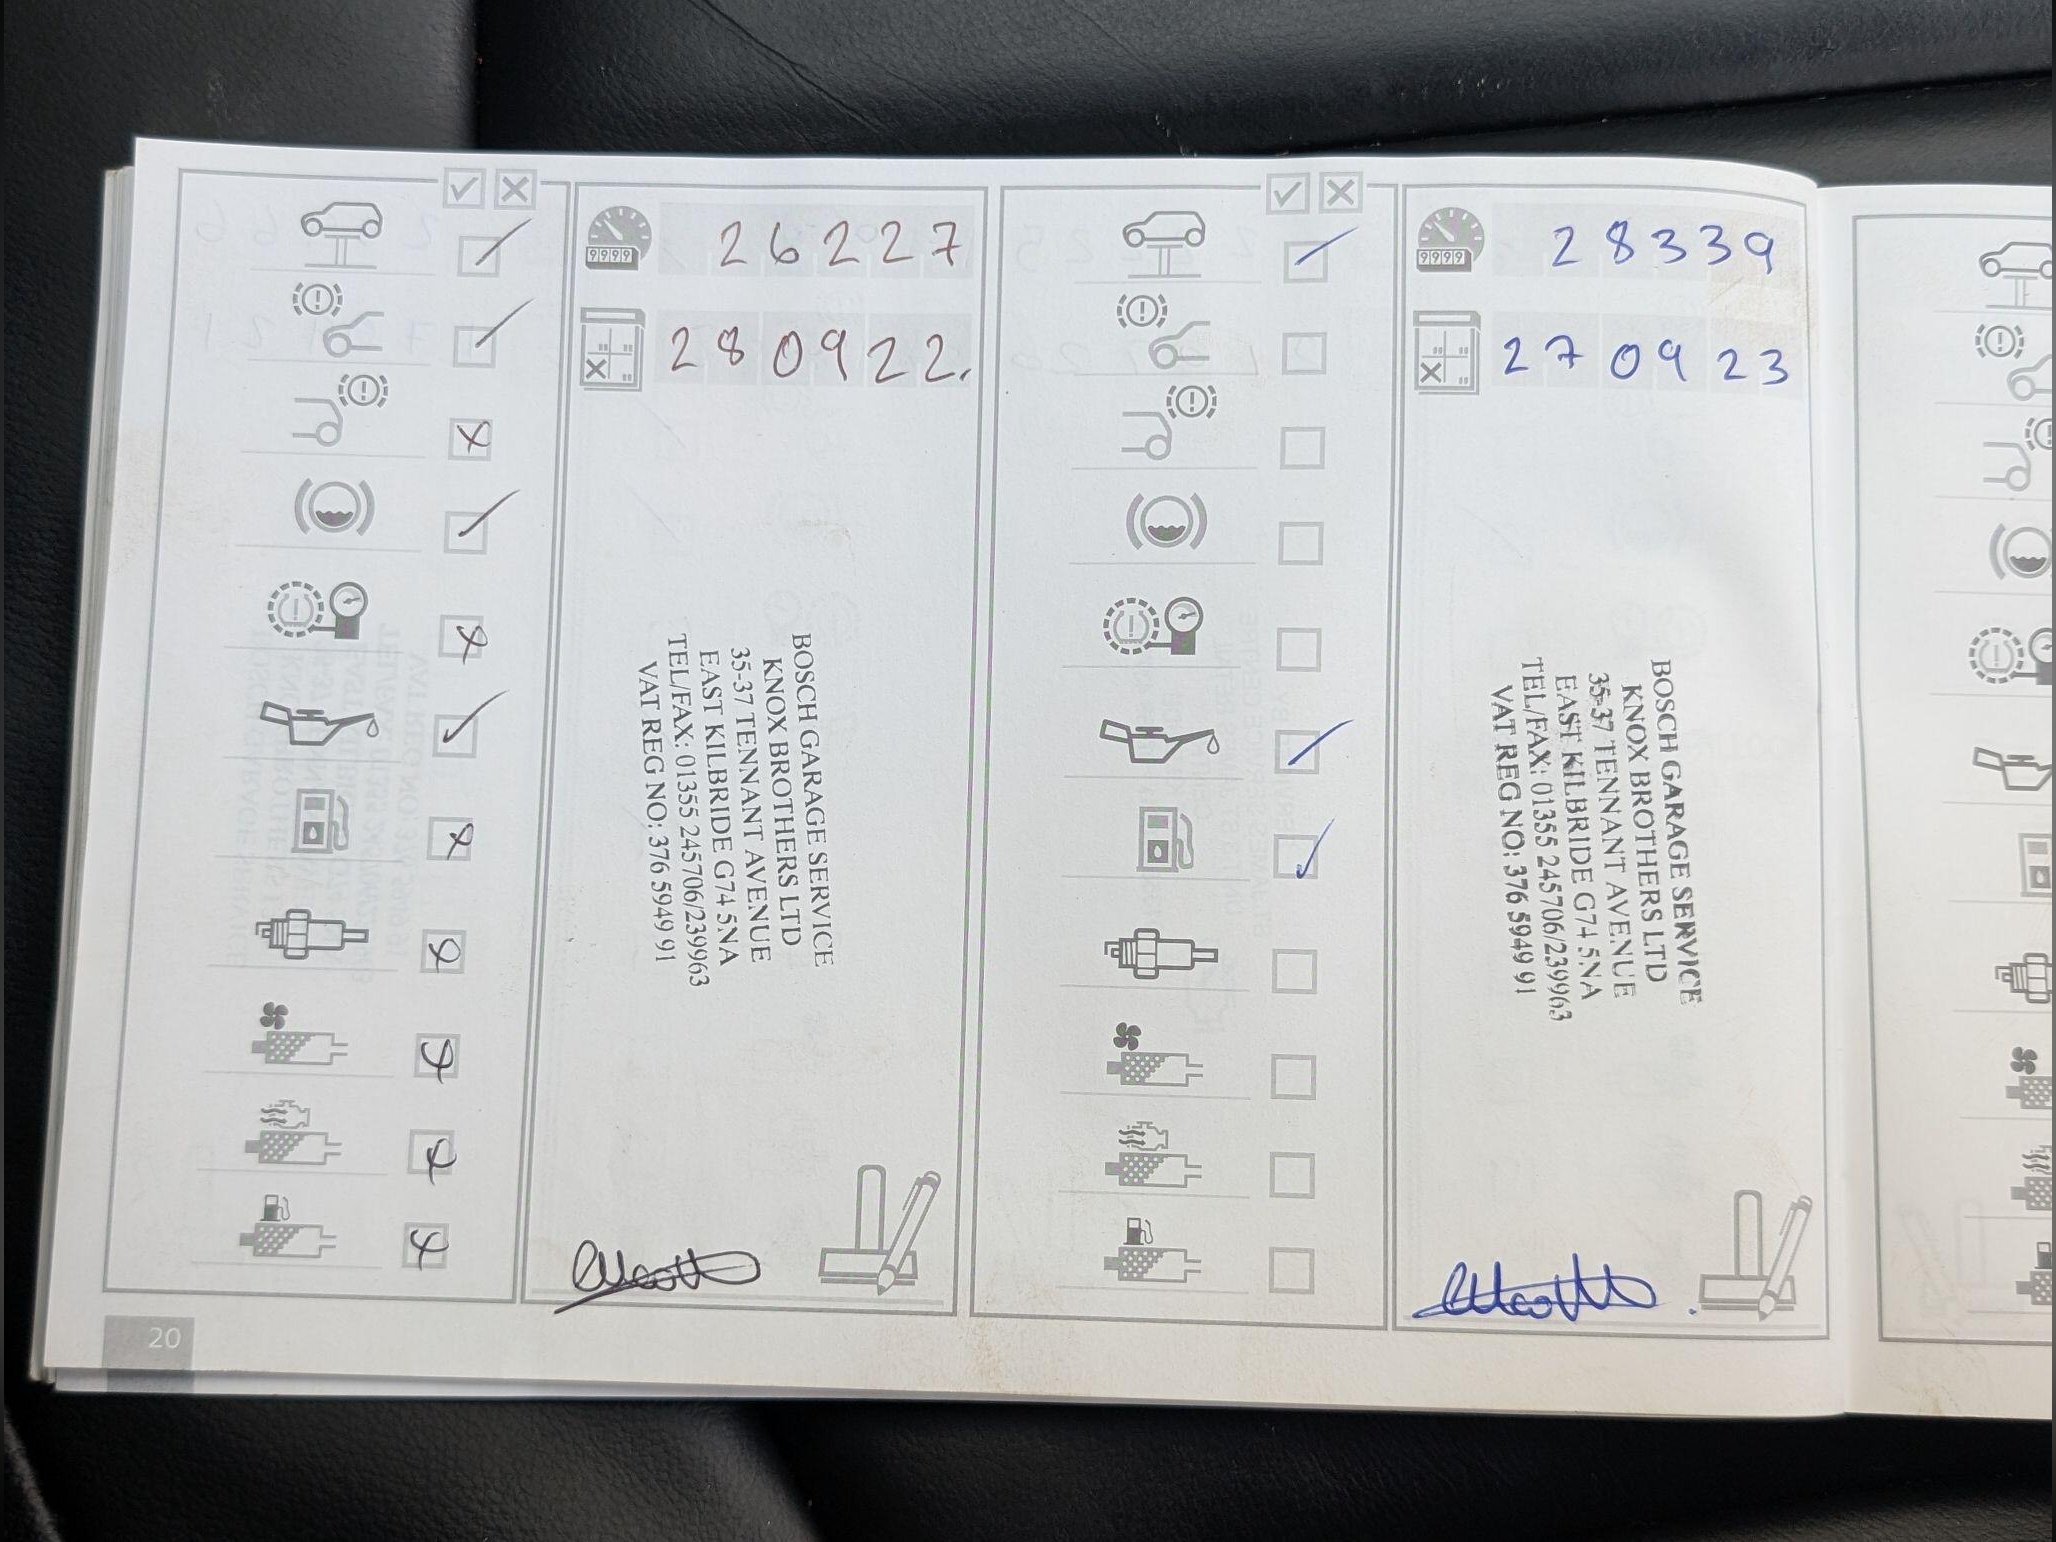 26227
280922.
BOSCH GARAGE SERVICE
KNOX BROTHERS LTD
35-37 TENNANT AVENUE
EAST KILBRIDE G74 5NA
TEL/FAX: 01355 245706/239963
VAT REG NO: 376 5949 91
28339
270923
BOSCH GARAGE SERVICE
KNOX BROTHERS LTD
35-37 TENNANT AVENUE
EAST KILBRIDE G74 5NA
TEL/FAX: 01355 245706/239963
VAT REG NO: 376 5949 91
9999
9999
20